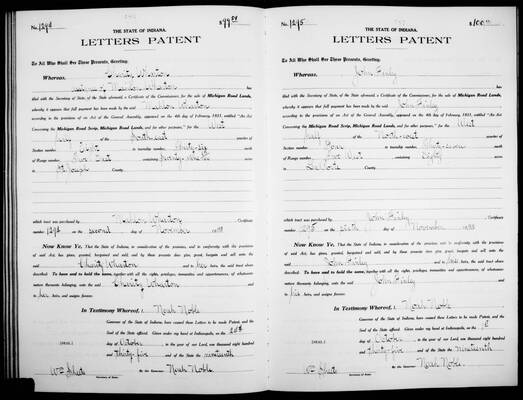 No. 1294 $99.84
THE STATE OF INDIANA.
LETTERS PATENT
To All Who Shall See These Presents, Greeting:
Whereas, Charity Wharton
assignee of Mahlon Wharton has
filed with the Secretary of State, of the State aforesaid, a Certificate of the Commissioner, for the sale of Michigan Road Lands,
whereby it appears that full payment has been made by the said Mahlon Wharton
according to the provisions of an Act of the General Assembly, approved on the 4th day of February, 1833, entitled "An Act
Concerning the Michigan Road Scrip, Michigan Road Lands, and for other purposes," for the West
half of the South-east quarter of
Section Eight in township Thirty-six
of Range Two East containing
St. Joseph County.
which tract was purchased by Mahlon Wharton, Certificate
number 1294 on the second day of November 18
Now Know Ye, That the State of Indiana, in consideration of the premises, and in conformity with the provisions
of said Act, has given, granted, bargained and sold, and by these presents does give, grant, bargain and sell unto the said
Charity Wharton and to her heirs, the said tract above
described. To have and to hold the same, together with all the rights, privileges, immunities and appurtenances, of whatsoever
nature thereunto belonging, unto the said Charity Wharton
and to her heirs, and assigns forever.
In Testimony Whereof, I Noah Noble
Governor of the State of Indiana, have caused these Letters to be made Patent, and the
Seal of the State affixed. Given under my hand at Indianapolis, on the
(SEAL) day of October in the year of our Lord, one thousand eight hundred
and thirty-five and of the State the nineteenth
By the Governor: Noah Noble.
Wm Sheets
Secretary of State.
No. 1295 $100.00
THE STATE OF INDIANA.
LETTERS PATENT
To All Who Shall See These Presents, Greeting:
Whereas, John Finly
has
filed with the Secretary of State, of the State aforesaid, a Certificate of the Commissioner, for the sale of Michigan Road Lands,
whereby it appears that full payment has been made by the said John Finly
according to the provisions of an Act of the General Assembly, approved on the 4th day of February, 1833, entitled "An Act
Concerning the Michigan Road Scrip, Michigan Road Lands, and for other purposes," for the West
half of the North-west quarter of
Section Four in township Thirty-seven
of Range West containing Eighty acres in
LaPorte County.
which tract was purchased by John Finly, Certificate
number 1295 on the sixth day of November 18
Now Know Ye, That the State of Indiana, in consideration of the premises, and in conformity with the provisions
of said Act, has given, granted, bargained and sold, and by these presents does give, grant, bargain and sell unto the said
John Finly and to his heirs, the said tract above
described. To have and to hold the same, together with all the rights, privileges, immunities and appurtenances, of whatsoever
nature thereunto belonging, unto the said John Finly
and to his heirs, and assigns forever.
In Testimony Whereof, I Noah Noble
Governor of the State of Indiana, have caused these Letters to be made Patent, and the
Seal of the State affixed. Given under my hand at Indianapolis, on the
(SEAL) day of October in the year of our Lord, one thousand eight hundred
and thirty-five and of the State the nineteenth
By the Governor: Noah Noble.
Wm Sheets
Secretary of State.